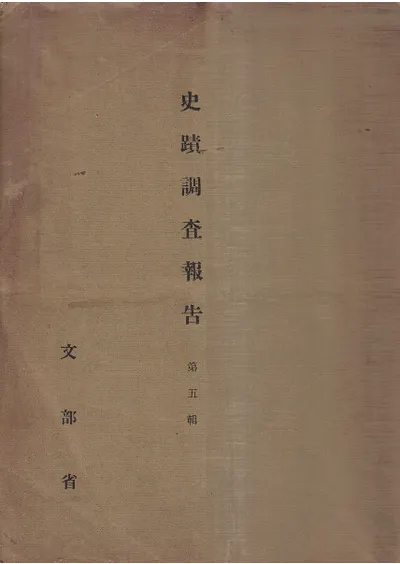 史蹟調査報告
第五輯
文部省